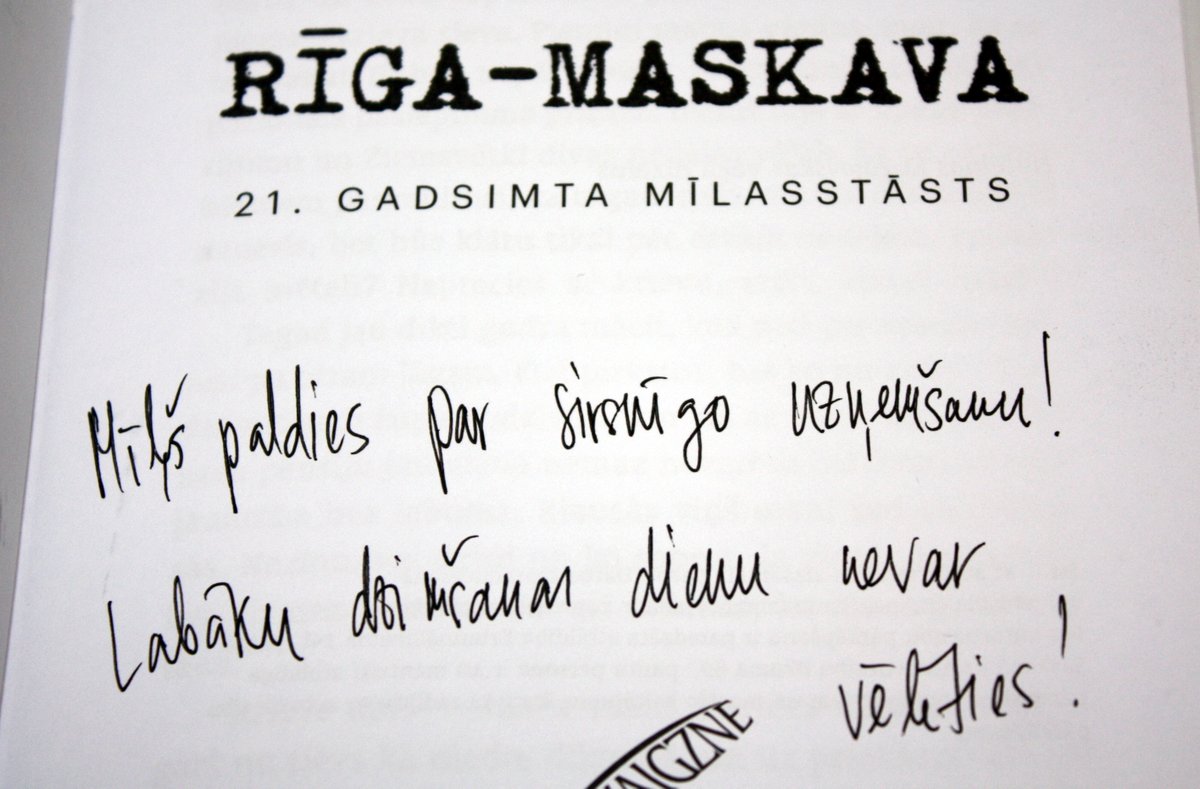 RĪGA-MASKAVA
21. GADSIMTA MĪLASSTĀSTS
Mīļš paldies par sirsnīgo uzņemšanu!
Labāku dzimšanas dienu nevar
vēlēties!